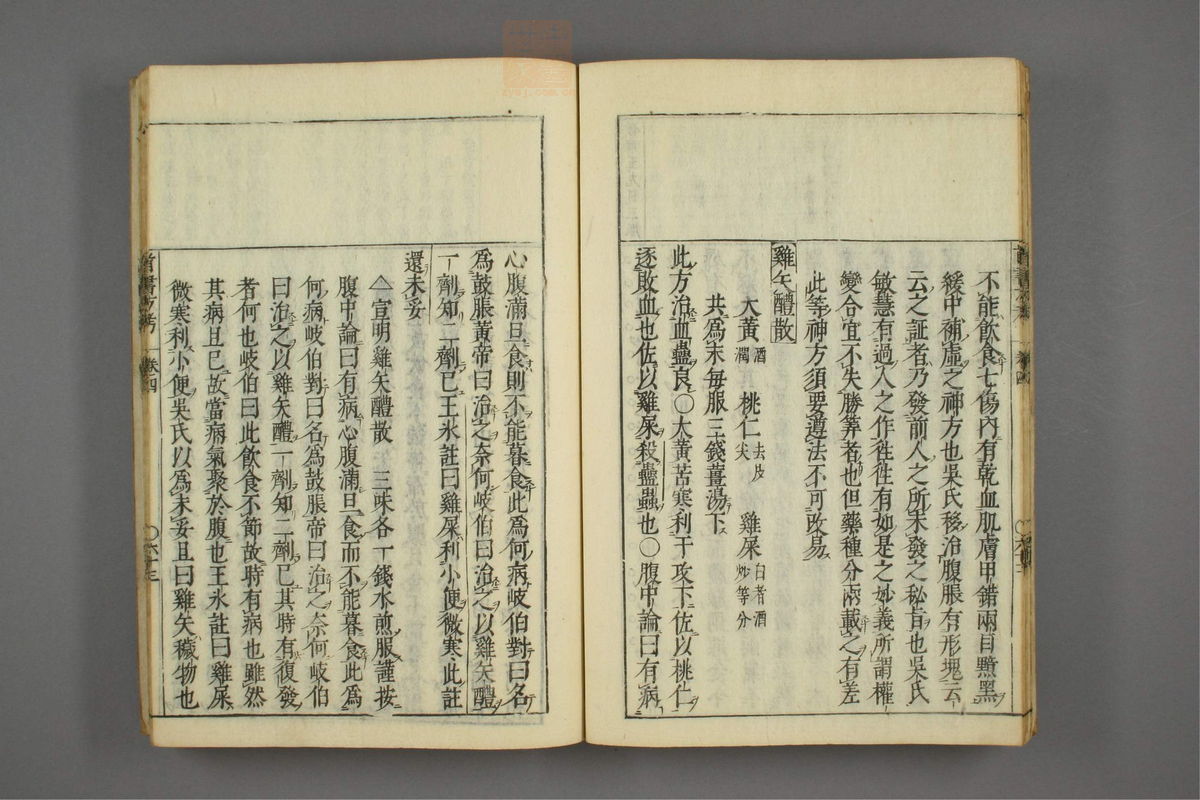 不能飲食七傷內有乾血肌膚甲錯兩目黯黑
緩中補虛之神方也吳氏移治腹脹有形塊云
云之証者乃發前人之所未發之秘旨也吳氏
敏慧有過人之作徃徃有如是之妙義所謂權
變合宜不失勝筭者也但藥種分兩載之有差
此等神方須要遵法不可改易
雞矢醴散
大黃酒潤 桃仁去皮尖 雞屎白者酒炒等分
共爲末每服三錢薑湯下
此方治血蠱良○大黃苦寒利于攻下佐以桃仁
逐敗血也佐以雞屎殺蠱蟲也○腹中論曰有病
心腹滿旦食則不能暮食此爲何病岐伯對曰名
爲鼓脹黃帝曰治之奈何岐伯曰治之以雞矢醴
一劑知二劑已王氷註曰雞屎利小便微寒此註
還未妥
宣明雞矢醴散 三味各一錢水煎服謹按
腹中論曰有病心腹滿旦食而不能暮食此爲
何病岐伯對曰名爲鼓脹帝曰治之奈何岐伯
曰治之以雞矢醴一劑知二劑已其時有復發
者何也岐伯曰此飲食不節故時有病也雖然
其病且已故當病氣聚於腹也王氷註曰雞屎
微寒利小便吳氏以爲未妥且曰雞矢穢物也
卷四
六十三